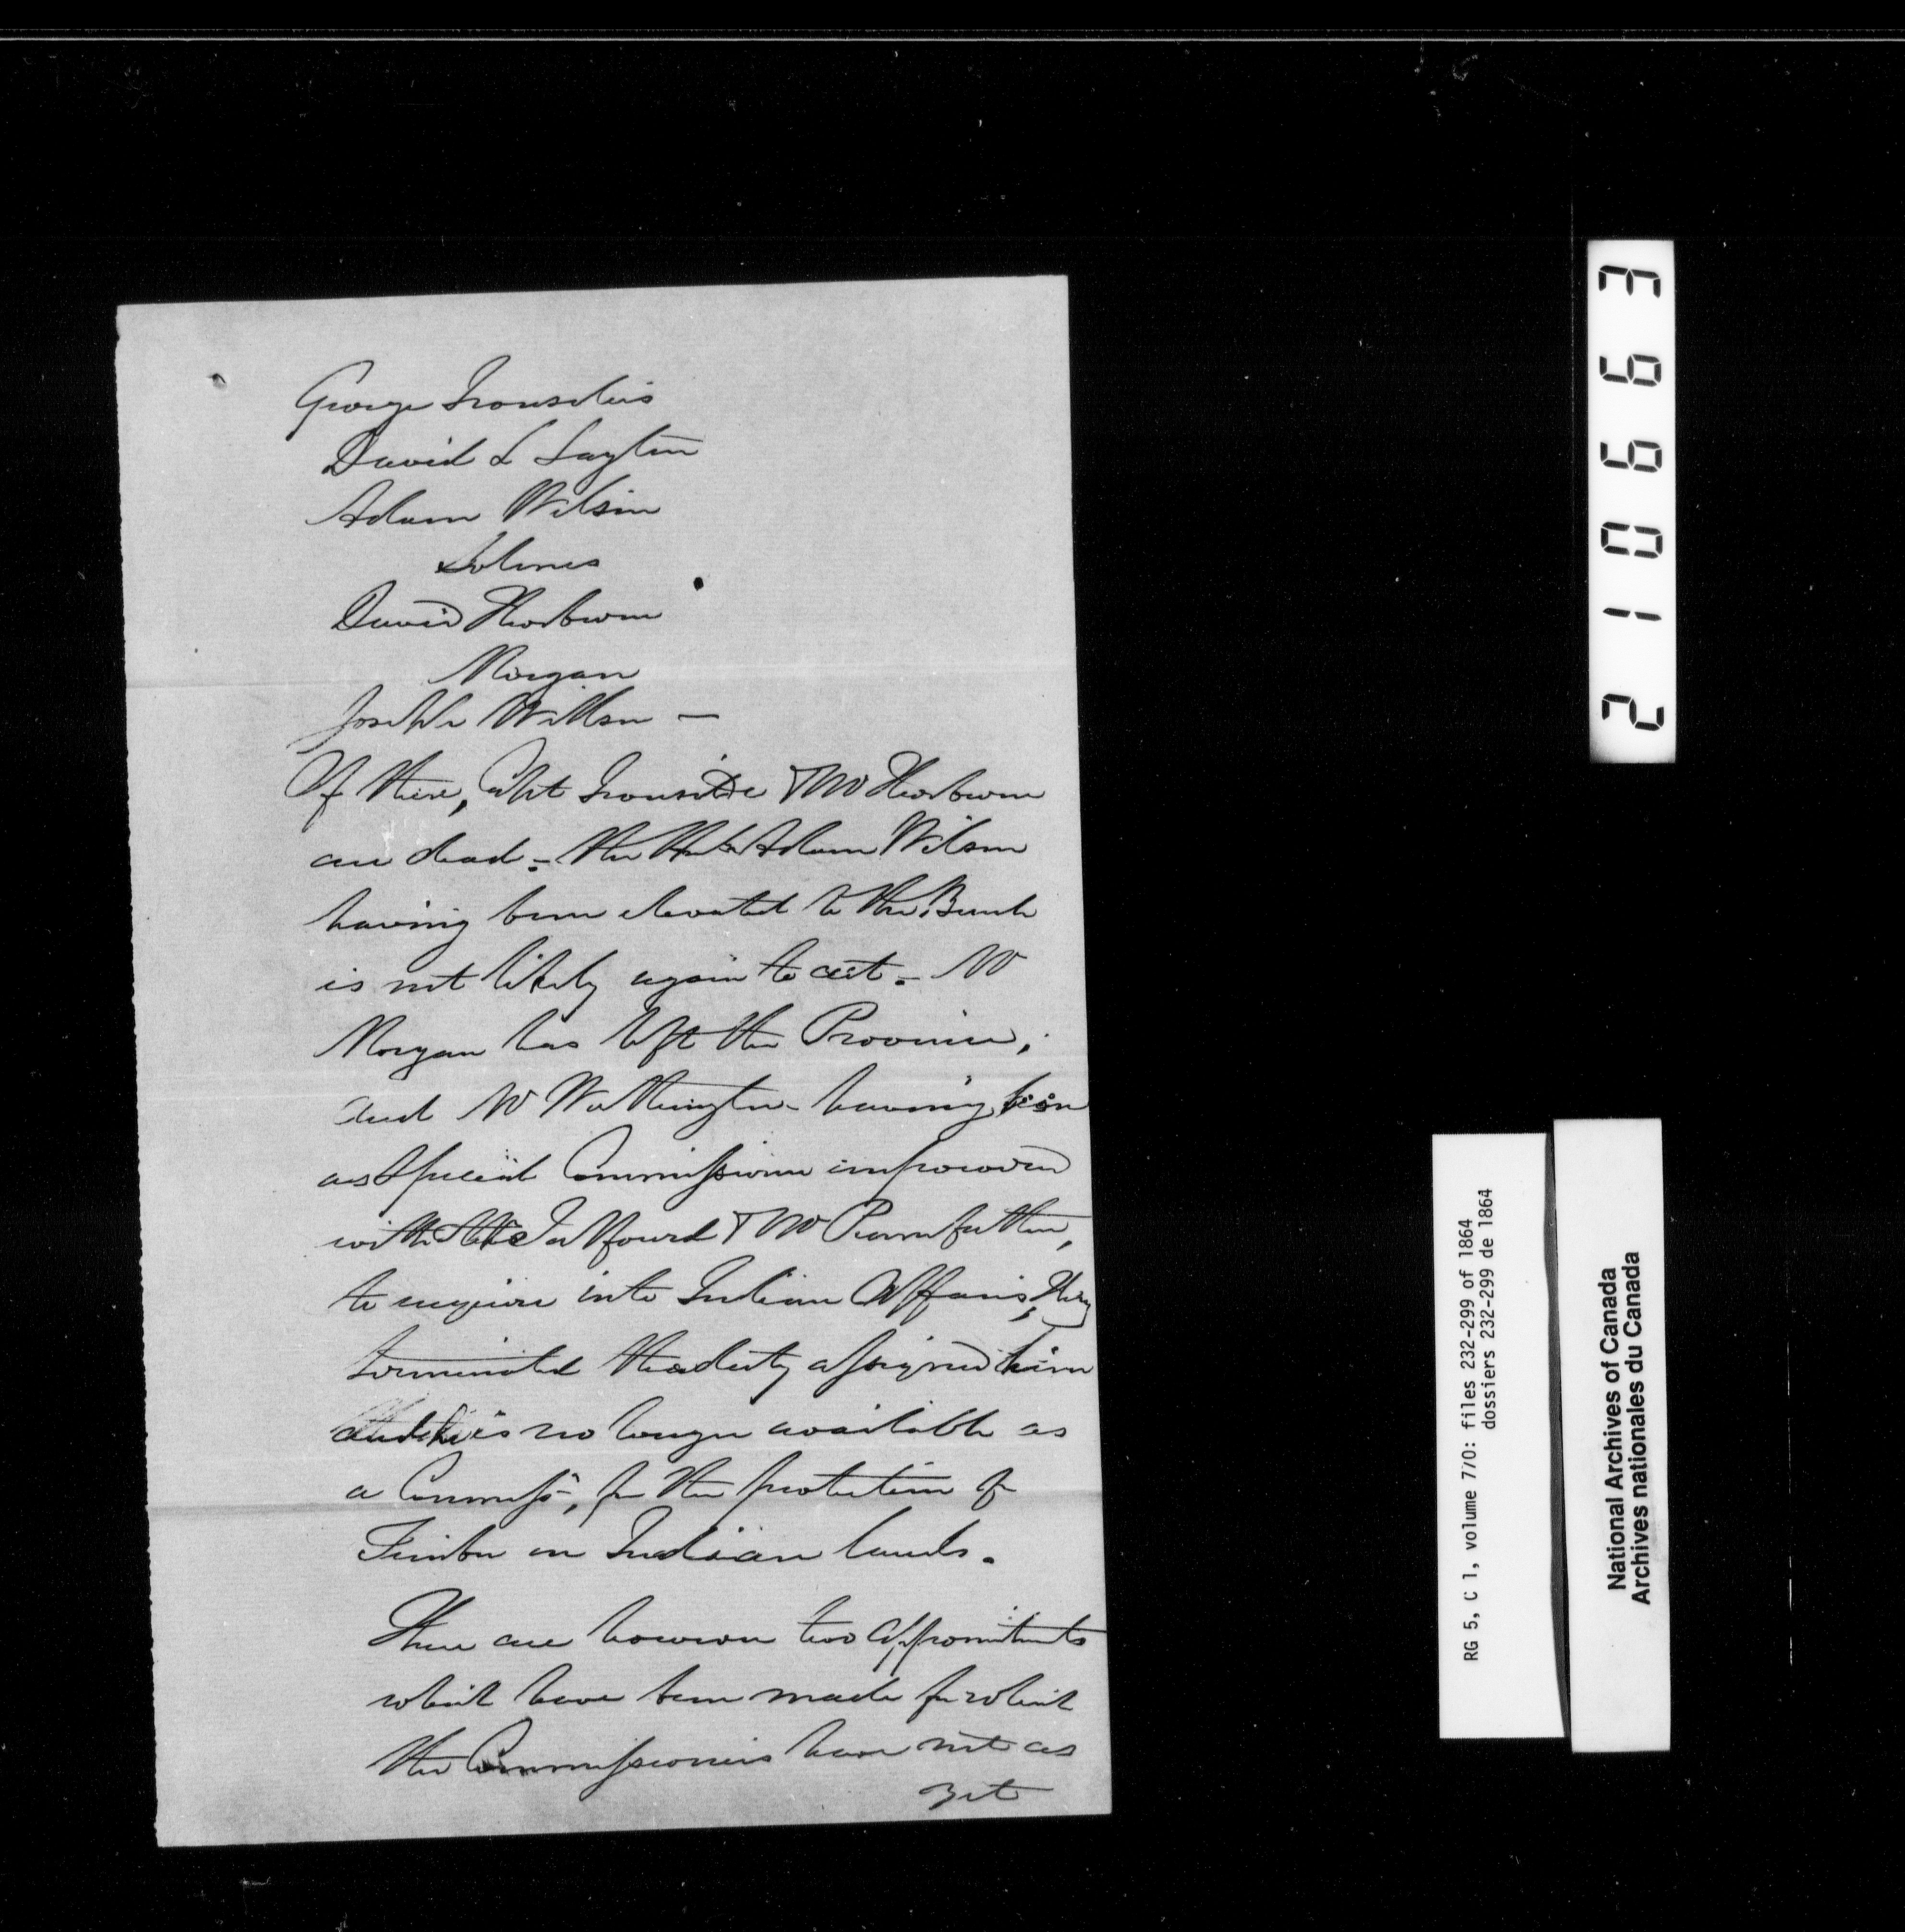 George Ironsides
David L Layton
Adam Wilson
Holmes
David Thorburn
Morgan
Joseph Willson —
Of these, Capt Ironside & Mr Thorburn
are dead - the Honble Adam Wilson
having been elevated to the Bench
is not likely again to act - Mr
Morgan has left the Province;
and Mr Worthington having been
as Special Commissioner empowered
with Talfourd & Mr Pennefather,
to enquire into Indian Affairs, they
terminated the duty assigned him
and he is no longer available as
a Commissr, for the protection of
Timber on Indian lands.
There are however two appointments
which have been made for which
the Commissioners have not as
yet
210663
RG 5, C 1, volume 770: files 232-299 of 1864
dossiers 232-299 de 1864
National Archives of Canada
Archives nationales du Canada